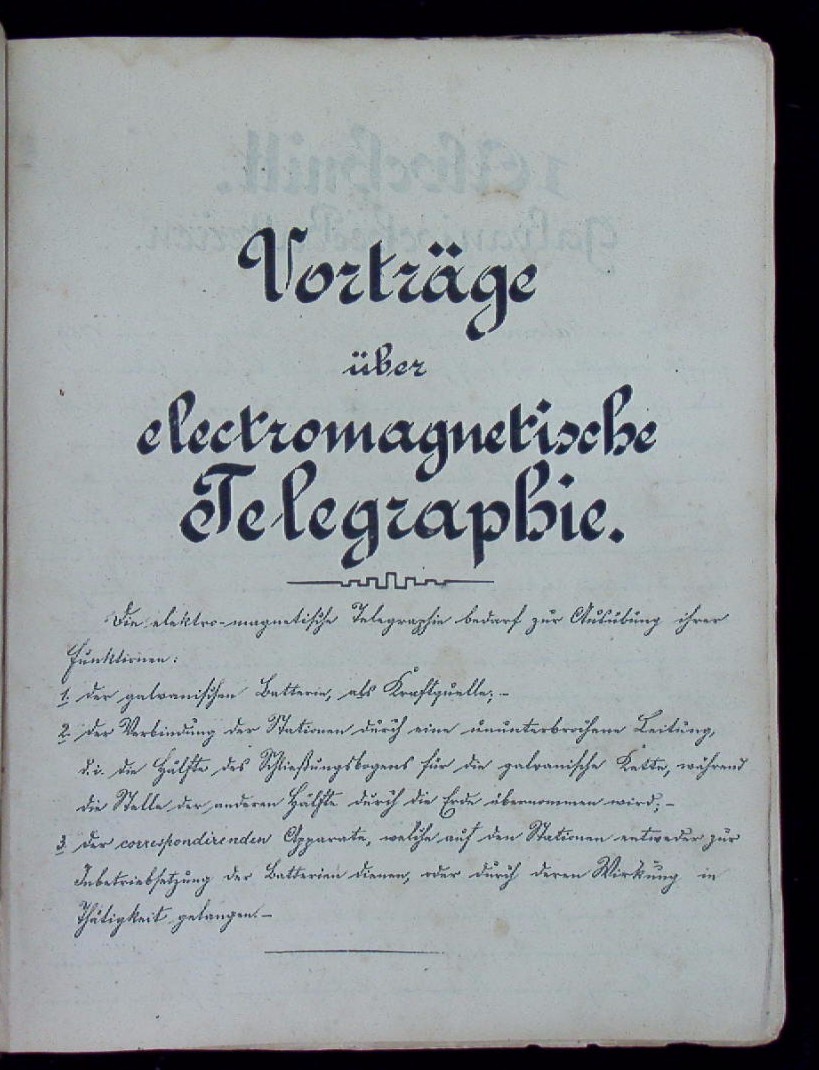 Vorträge
über
electromagnetische
Telegraphie.
Die elektro-magnetische Telegraphie bedarf zur Ausübung ihrer
Funktionen:
1. der galvanischen Batterie, als Kraftquelle; -
2. der Verbindung der Stationen durch eine ununterbrochene Leitung,
d.i. die Hälfte des Schließungsbogens für die galvanische Kette, während
die Stelle der anderen Hälfte durch die Erde übernommen wird; -
3. der correspondirenden Apparate, welche auf den Stationen entweder zur
Inbetriebsetzung der Batterien dienen, oder durch deren Wirkung in
Thätigkeit gelangen. -